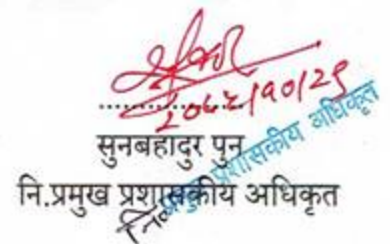 २०८२।१०।२९
सुनबहादुर पुन
नि.प्रमुख प्रशासकीय अधिकृत
प्रमुख प्रशासकीय अधिकृत